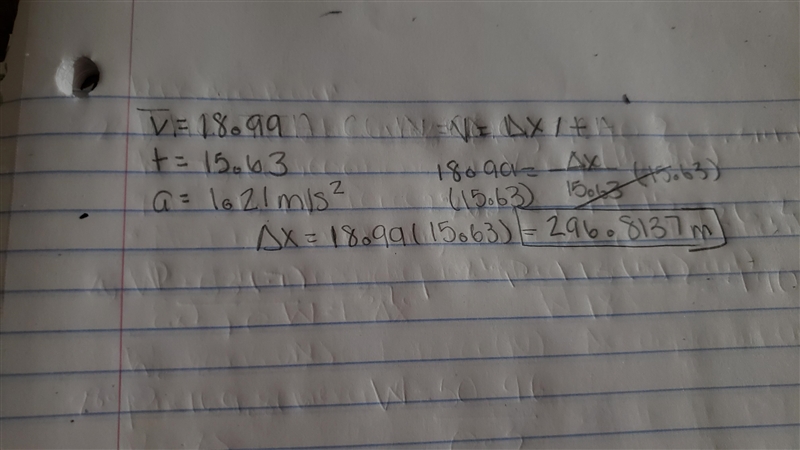 V̅ = 18.99 V = Δx / t
t = 15.63 18.99 = Δx
(15.63) 15.63 (15.63)
a = 1.21 m/s²
Δx = 18.99 (15.63) = 296.8137 m